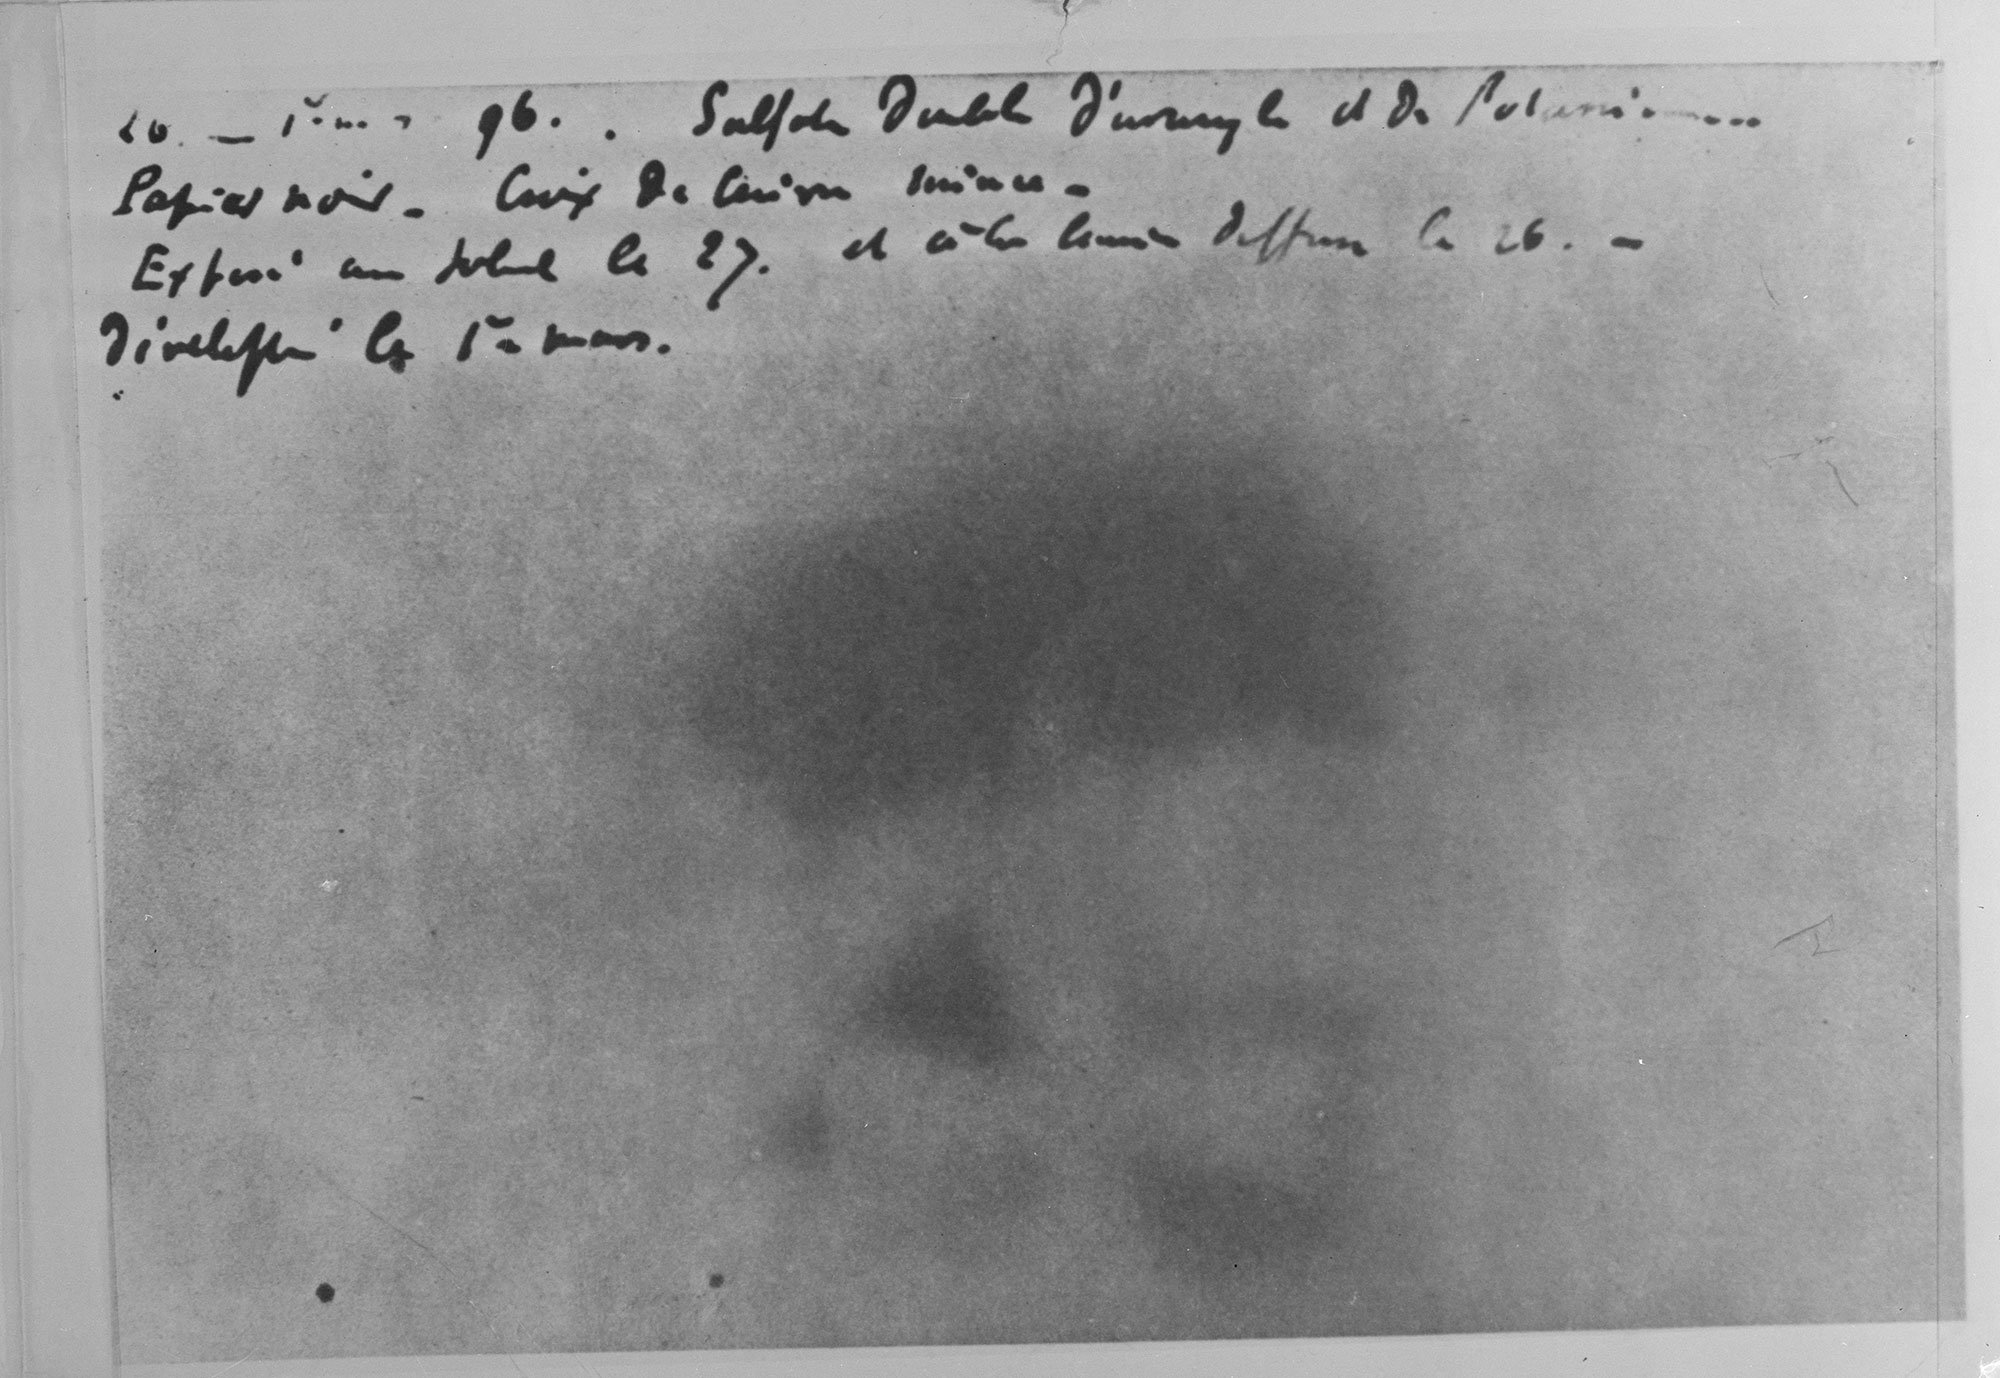 96. Sulfate double d'uranyle et de Potassium
Papier noir. Croix de cuivre mince -
Exposé au soleil le 27. et à la lumière diffuse le 26. -
Développé le 1er mars.